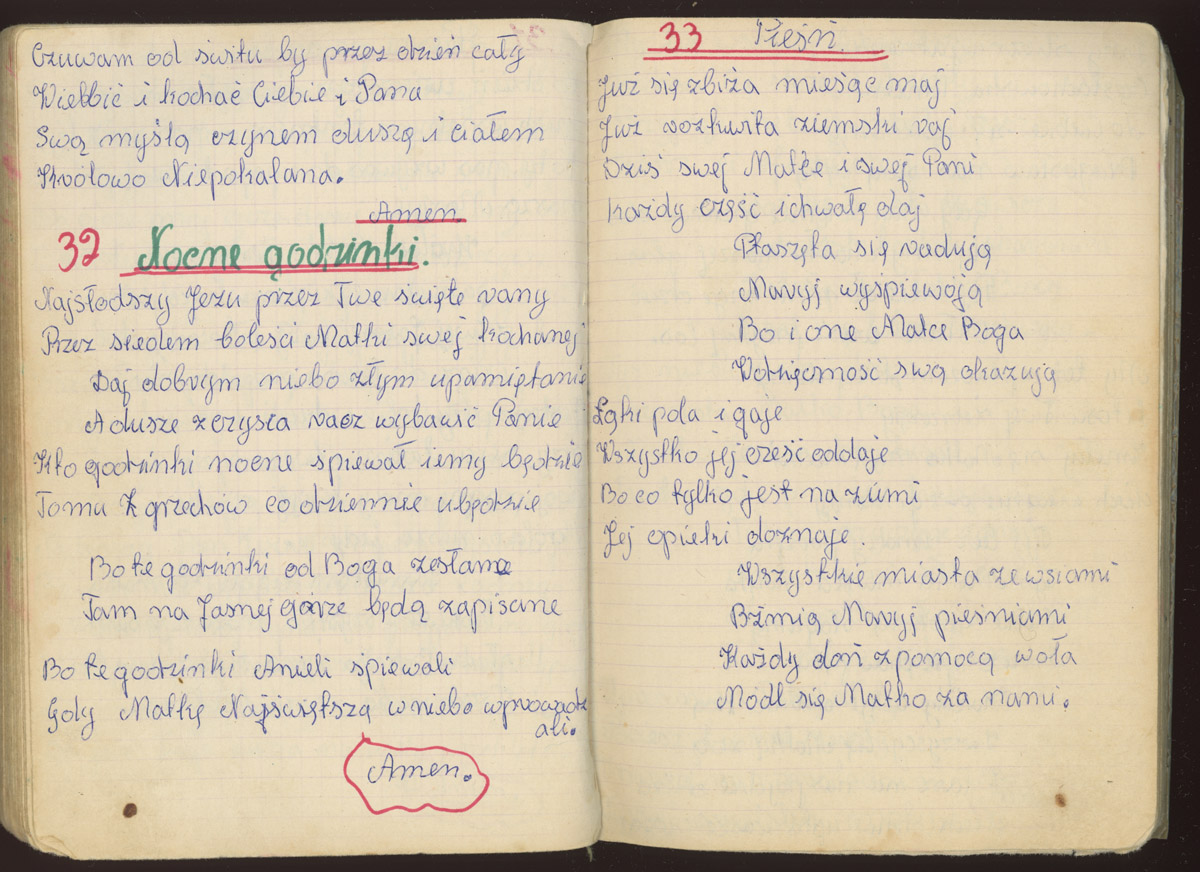 Czuwam od świtu by przez dzień cały
Wielbić i kochać Ciebie i Pana
Swą myślą czynem duszą i ciałem
Królowo Niepokalana.
Amen
32 Nocne godzinki.
Najsłodszy Jezu przez Twe święte rany
Przez siedem boleści Matki swej kochanej
Daj dobrym niebo złym upamiętanie
A dusze z czyśca racz wybawić Panie
Kto godzinki nocne śpiewał i emy będzie
Tomu z grzechów co dziennie ubędzie
Bo te godzinki od Boga zesłane
Tam na Jasnej górze będą zapisane
Bo te godzinki Anieli śpiewali
Gdy Matkę Najświętszą w niebo wprowadz
ali.
Amen.
33 Pieśń.
Już się zbiża miesąc maj
Już rozkwita ziemski raj
Dziś swej Matce i swej Pani
Każdy część i chwałę daj
Ptaszęta się radują
Maryj wyśpiewoją
Bo i one Matce Boga
Wdzięczność swą okazują
Łąki pola i gaje
Wszystko jej cześć oddaje
Bo co tylko jest na ziimi
Jej opieki doznaje.
Wszystkie miasta ze wsiami
Bźmią Maryj pieśniami
Każdy doń z pomocą woła
Módl się Matko za nami.